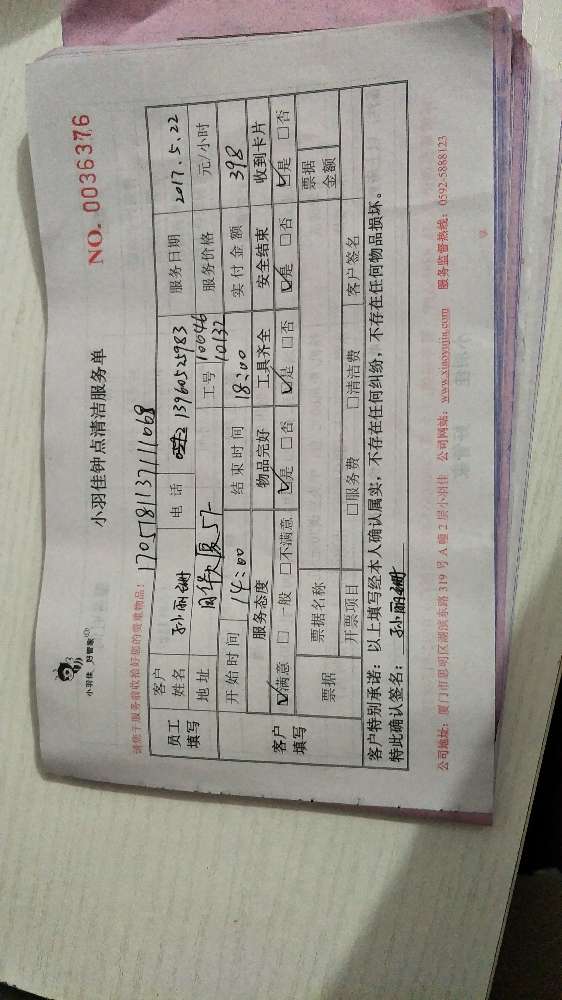 小羽佳 好管家
小羽佳钟点清洁服务单
NO. 0036376
请您于服务前收拾好您的贵重物品!
1705181137111068
员工填写 客户姓名 孙丽珊 电话 13960525983 服务日期 2017.5.22
地址 工号 10046 10132 服务价格 元/小时
开始时间 14:00 结束时间 18:00 实付金额 398
客户填写 服务态度 物品完好 工具齐全 安全结束 收到卡片
☑满意 □一般 □不满意 ☑是 □否 ☑是 □否 ☑是 □否 ☑是 □否
票据 票据名称 票据金额
开票项目 □服务费 □清洁费 客户签名
客户特别承诺:以上填写经本人确认属实,不存在任何纠纷,不存在任何物品损坏。
特此确认签名: 孙丽珊
公司地址:厦门市思明区湖滨东路 319 号 A 幢 2 层小羽佳 公司网站:www.xiaoyujia.com 服务监督热线:0592-5888123